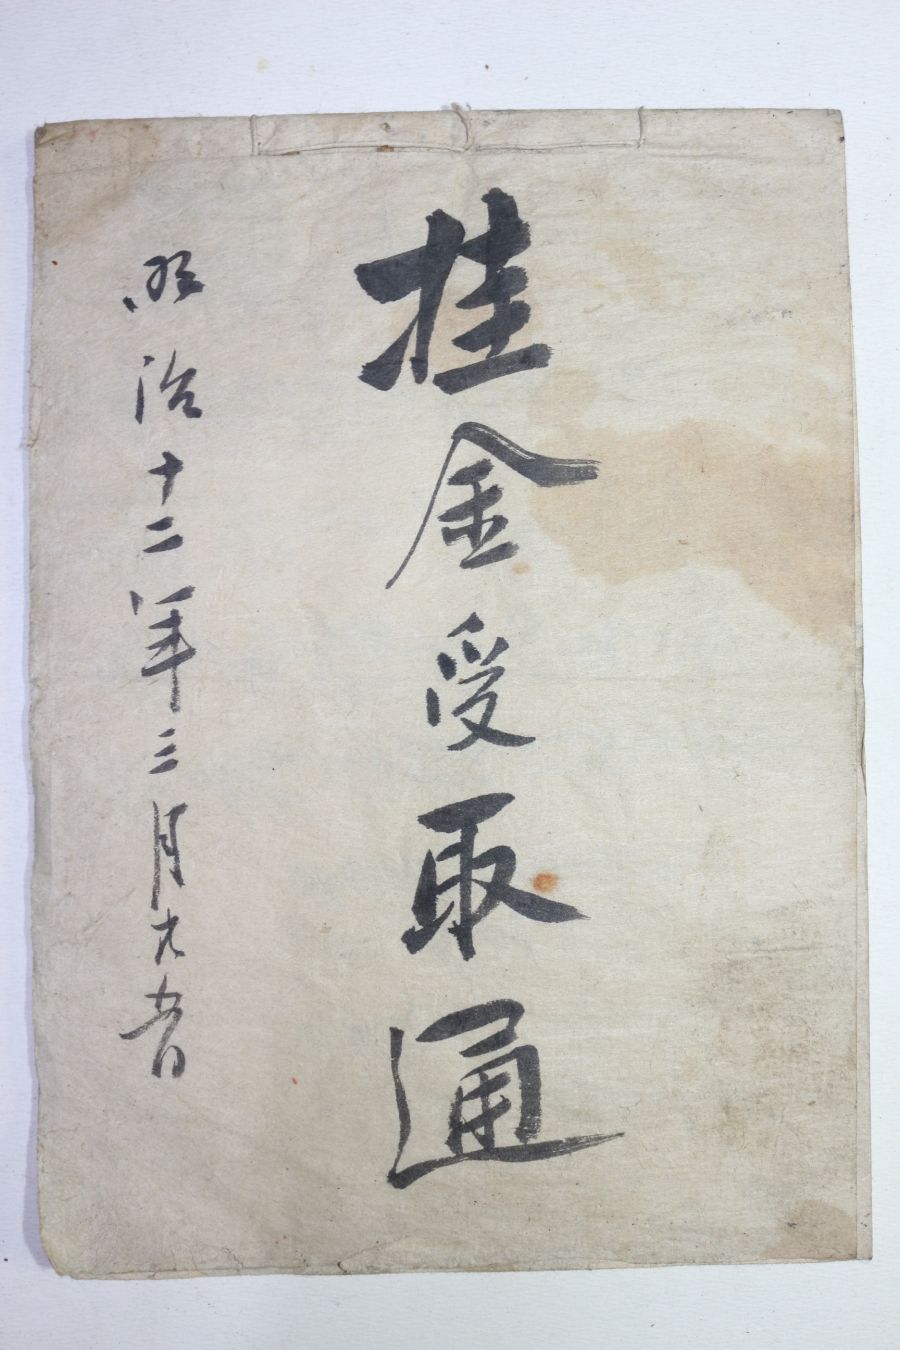 挂金受取通
明治十二年三月大吉日